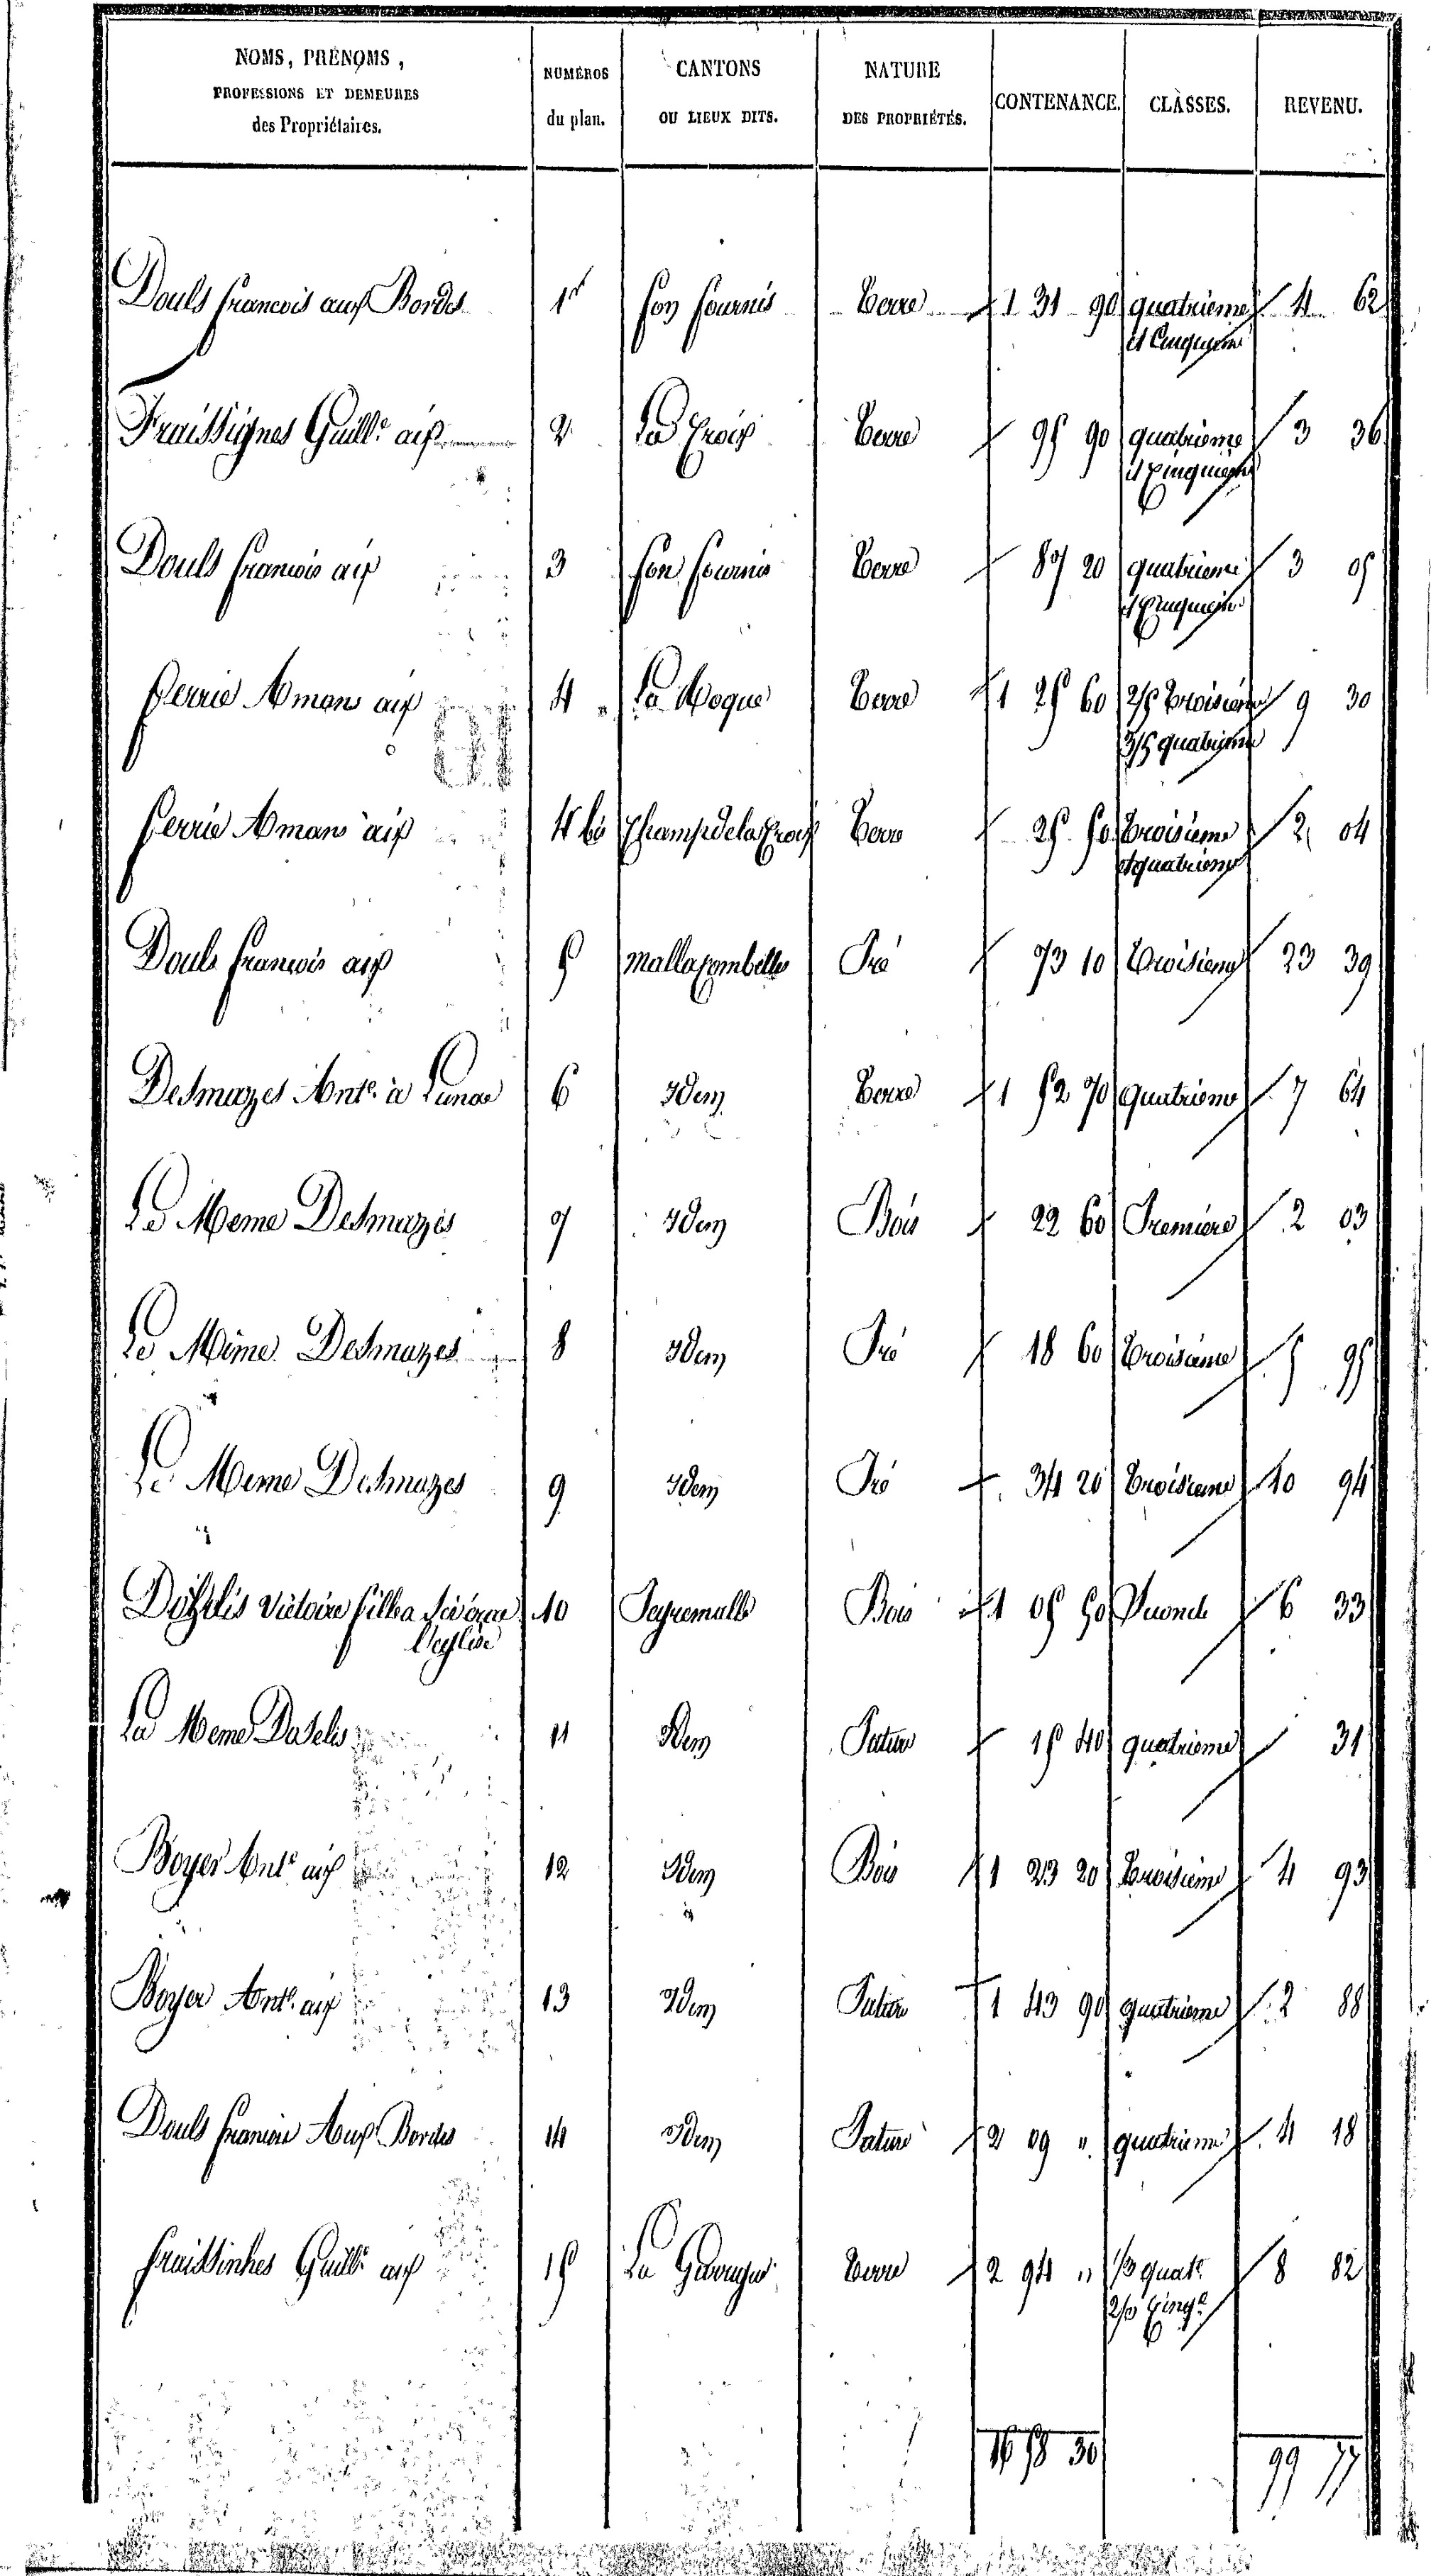 NOMS, PRÉNOMS, PROFESSIONS ET DEMEURES des Propriétaires. NUMÉROS du plan. CANTONS OU LIEUX DITS. NATURE DES PROPRIÉTÉS. CONTENANCE. CLASSES. REVENU.
Douls francois aux Bordes 1er fon fournis Terre 1 31 90 quatrieme 4 62
et Cinquieme
Fraissignes Guille. aux 2 La Croix Terre 95 90 quatrieme 3 36
et Cinquieme
Douls francois aux 3 fon fournis Terre 87 20 quatrieme 3 05
et Cinquieme
ferrié Amans aux 4 La Roque Terre 1 25 60 2/5 troisieme 9 30
3/5 quatrieme
ferrié Amans aux 4 bis Champ de la Croix Terre 25 50 troisieme 2 04
et quatrieme
Douls francois aux 5 mallacombelle Pré 73 10 troisieme 23 39
Desmazes Ante. à Lunac 6 Idem Terre 1 52 70 quatrieme 7 64
Le Meme Desmazes 7 Idem Bois 22 60 Premiere 2 03
Le Même Desmazes 8 Idem Pré 18 60 troisieme 5 95
Le Meme Desmazes 9 Idem Pré 34 20 troisieme 10 94
victoire fille a 10 Peyremalle Bois 1 05 50 Seconde 6 33
l'eglise
La Meme 11 Idem Pature 15 40 quatrieme 31
Boyer Ante. aux 12 Idem Bois 1 23 20 troisieme 4 93
Boyer Ante. aux 13 Idem Pature 1 43 90 quatrieme 2 88
Douls francois Aux Bordes 14 Idem Pature 2 09 " quatrieme 4 18
fraissinhes Guille. aux 15 La Terre 2 94 " 1/3 quate. 8 82
2/3 Cinqe.
16 58 30 99 77